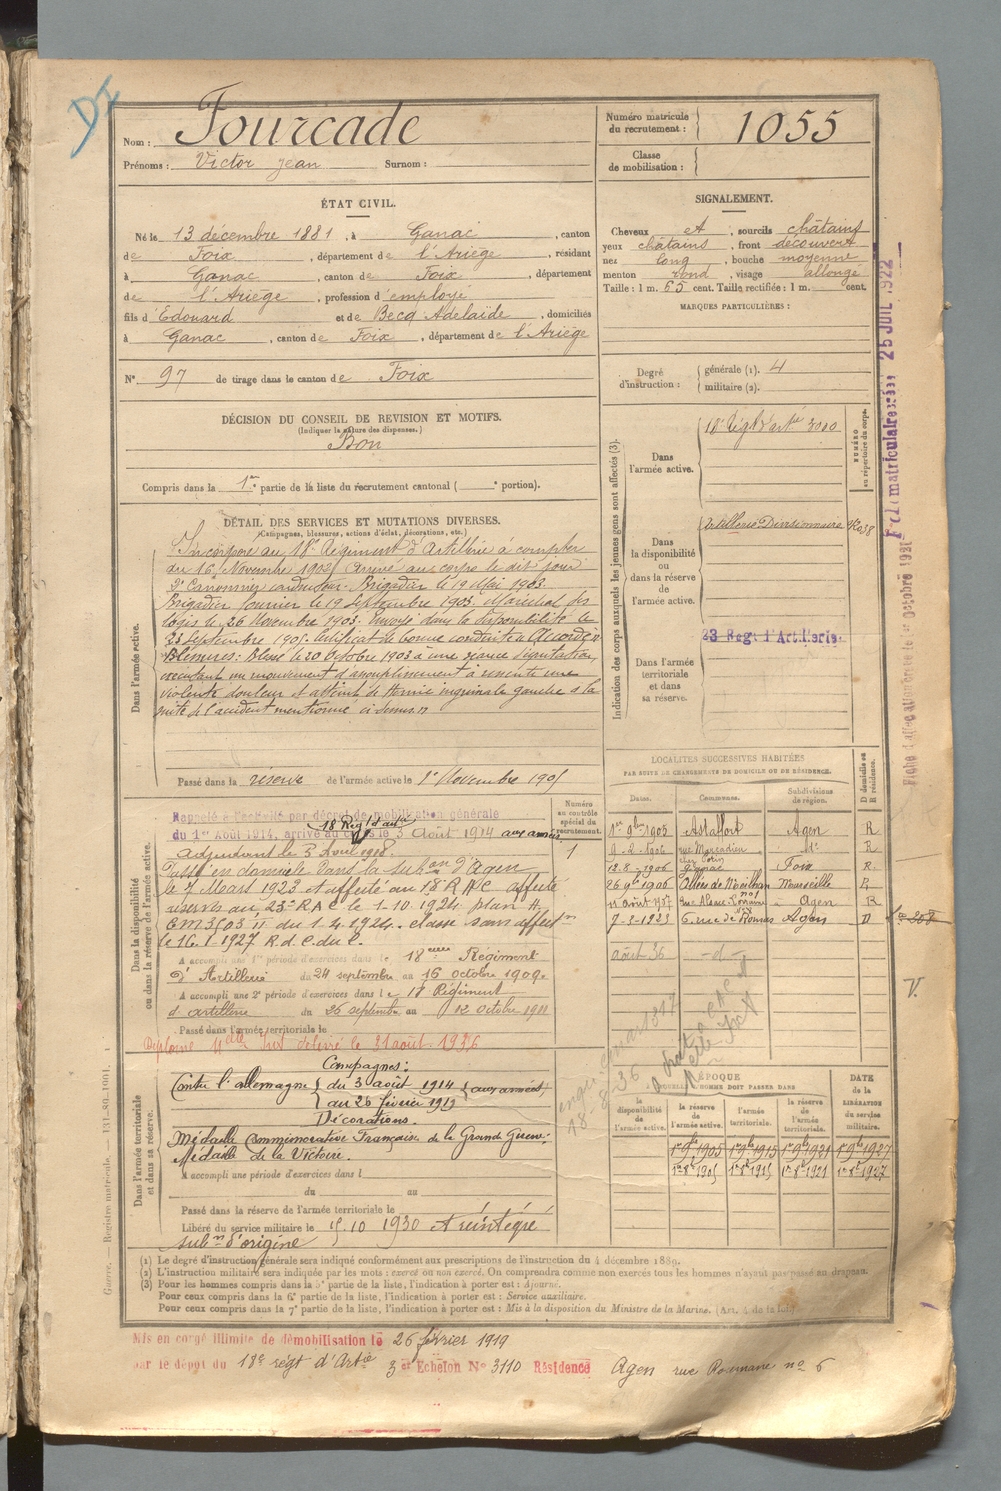 DI
Nom : Fourcade
Prénoms : Victor Jean Surnom :
Numéro matricule du recrutement : 1055
Classe de mobilisation :
ÉTAT CIVIL.
Né le 13 décembre 1881, à Ganac, canton
de Foix, département de l'Ariège, résidant
à Ganac, canton de Foix, département
de l'Ariège, profession d'employé
fils d'Edouard et de Becq Adelaïde, domiciliés
à Ganac, canton de Foix, département de l'Ariège
N° 97 de tirage dans le canton de Foix
SIGNALEMENT.
Cheveux et, sourcils châtains
yeux châtains, front découvert
nez long, bouche moyenne
menton rond, visage allongé
Taille : 1 m. 65 cent. Taille rectifiée : 1 m. cent.
MARQUES PARTICULIÈRES :
Degré d'instruction : générale (1). 4
militaire (2).
DÉCISION DU CONSEIL DE REVISION ET MOTIFS.
(Indiquer la nature des dispenses.)
Bon
Compris dans la 1re partie de la liste du recrutement cantonal ( e portion).
DÉTAIL DES SERVICES ET MUTATIONS DIVERSES.
(Campagnes, blessures, actions d'éclat, décorations, etc.)
Dans l'armée active.
Incorporé au 18e Régiment d'Artillerie à compter
du 16 Novembre 1902, arrivé au corps le dit jour
2e Canonnier conducteur. Brigadier le 19 Mai 1903.
Brigadier fourrier le 19 Septembre 1903. Maréchal des
logis le 26 Novembre 1903. Envoyé dans la disponibilité le
23 Septembre 1905. Certificat de bonne conduite Accordé.
Blessures : Blessé le 20 Octobre 1903 à une séance d'équitation,
exécutant un mouvement d'assouplissement a ressenti une
violente douleur et atteint de hernie inguinale gauche à la
suite de l'accident mentionné ci-dessus.
Passé dans la réserve de l'armée active le 1er Novembre 1905
Indication des corps auxquels les jeunes gens sont affectés (3).
NUMÉRO au répertoire du corps.
Dans l'armée active.
18e Régt d'artie 3080
Dans la disponibilité ou dans la réserve de l'armée active.
Artillerie Divisionnaire
Dans l'armée territoriale et dans sa réserve.
23 Regt d'Artillerie.
Fiche matriculaire 25 JUIL. 1922
Octobre 1931
Dans la disponibilité ou dans la réserve de l'armée active.
Numéro au contrôle spécial du recrutement.
1
Rappelé à l'activité par décret de mobilisation générale
18 Régt d'artie
du 1er Août 1914, arrivé au corps le 3 Août 1914 aux armées
Adjudant le 3 Avril 1918
Passé en domicile dans la subon d'Agen
le 7 Mars 1923 et affecté au 18e R.A.C. affecté
réserve au 23e R.A.C le 1-10-1924 plan A.
E.M. 3/03 II du 1-4-1924. classé sans affecton
le 16-1-1927 R. d. C. du C.
A accompli une 1re période d'exercices dans le 18eme Régiment
d'Artillerie du 24 septembre au 16 octobre 1909
A accompli une 2e période d'exercices dans le 18 Régiment
d'artillerie du 26 septembre au 12 octobre 1911
Passé dans l'armée territoriale le
Diplôme délivré le 31 août 1936
LOCALITÉS SUCCESSIVES HABITÉES
PAR SUITE DE CHANGEMENTS DE DOMICILE OU DE RÉSIDENCE.
Dates. Communes. Subdivisions de région. D domicile ou R résidence.
1er 9bre 1905 Astaffort Agen R
9-2-1906 rue Mercadieu id R
12.8.1906 Foix R.
26 9bre 1906 Allées de Meilhan Marseille R
11 août 1907 Rue Alsace-Lorraine Agen R
7-3-1923 6 rue de Agen D
août 36 -d-
V.
Dans l'armée territoriale et dans sa réserve.
Campagnes :
Contre l'allemagne du 3 août 1914 au 26 février 1919 aux armées
Décorations.
Médaille Commémorative Française de la Grande Guerre.
Médaille de la Victoire.
A accompli une période d'exercices dans l
du au
Passé dans la réserve de l'armée territoriale le
Libéré du service militaire le 15 10 1930 et réintégré
subon d'origine
ÉPOQUE
À LAQUELLE L'HOMME DOIT PASSER DANS
la disponibilité de l'armée active. la réserve de l'armée active. l'armée territoriale. la réserve de l'armée territoriale.
DATE de la LIBÉRATION du service militaire.
1er 9bre 1905 1er 9bre 1915 1er 9bre 1921 1er 9bre 1927
(1) Le degré d'instruction générale sera indiqué conformément aux prescriptions de l'instruction du 4 décembre 1889.
(2) L'instruction militaire sera indiquée par les mots : exercé ou non exercé. On comprendra comme non exercés tous les hommes n'ayant pas passé au drapeau.
(3) Pour les hommes compris dans la 5e partie de la liste, l'indication à porter est : Ajourné.
Pour ceux compris dans la 6e partie de la liste, l'indication à porter est : Service auxiliaire.
Pour ceux compris dans la 7e partie de la liste, l'indication à porter est : Mis à la disposition du Ministre de la Marine. (Art. 4 de la loi.)
Guerre. — Registre matricule. 131-89-1901.
Mis en congé illimité de démobilisation le 26 février 1919
par le dépôt du 18e régt d'Artie 3er Echelon No 3110 Résidence Agen rue Roumane no 6